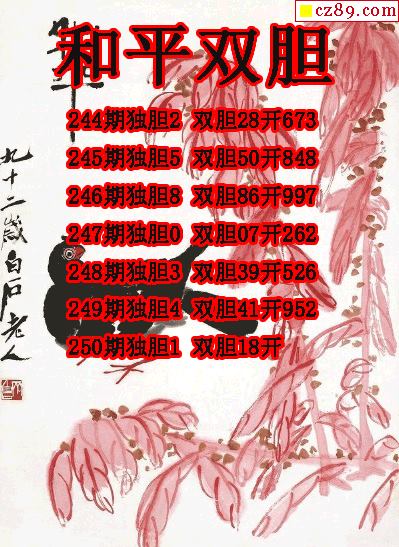 cz89.com
和平双胆
244期独胆2 双胆28开673
245期独胆5 双胆50开848
246期独胆8 双胆86开997
247期独胆0 双胆07开262
248期独胆3 双胆39开526
249期独胆4 双胆41开952
250期独胆1 双胆18开
九十二岁白石老人